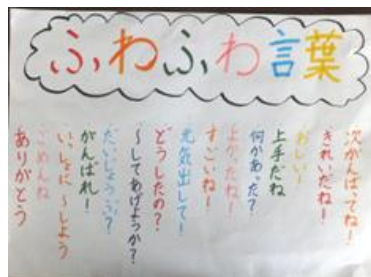 ふわふわ言葉
次がんばってね!
きれいだね!
おしい!
上手だね
何があった?
よかったね!
すごいね!
元気出して!
どうしたの?
~してあげよっか?
だいじょうぶ?
がんばれ!
いっしょに~しよう
ごめんね
ありがとう